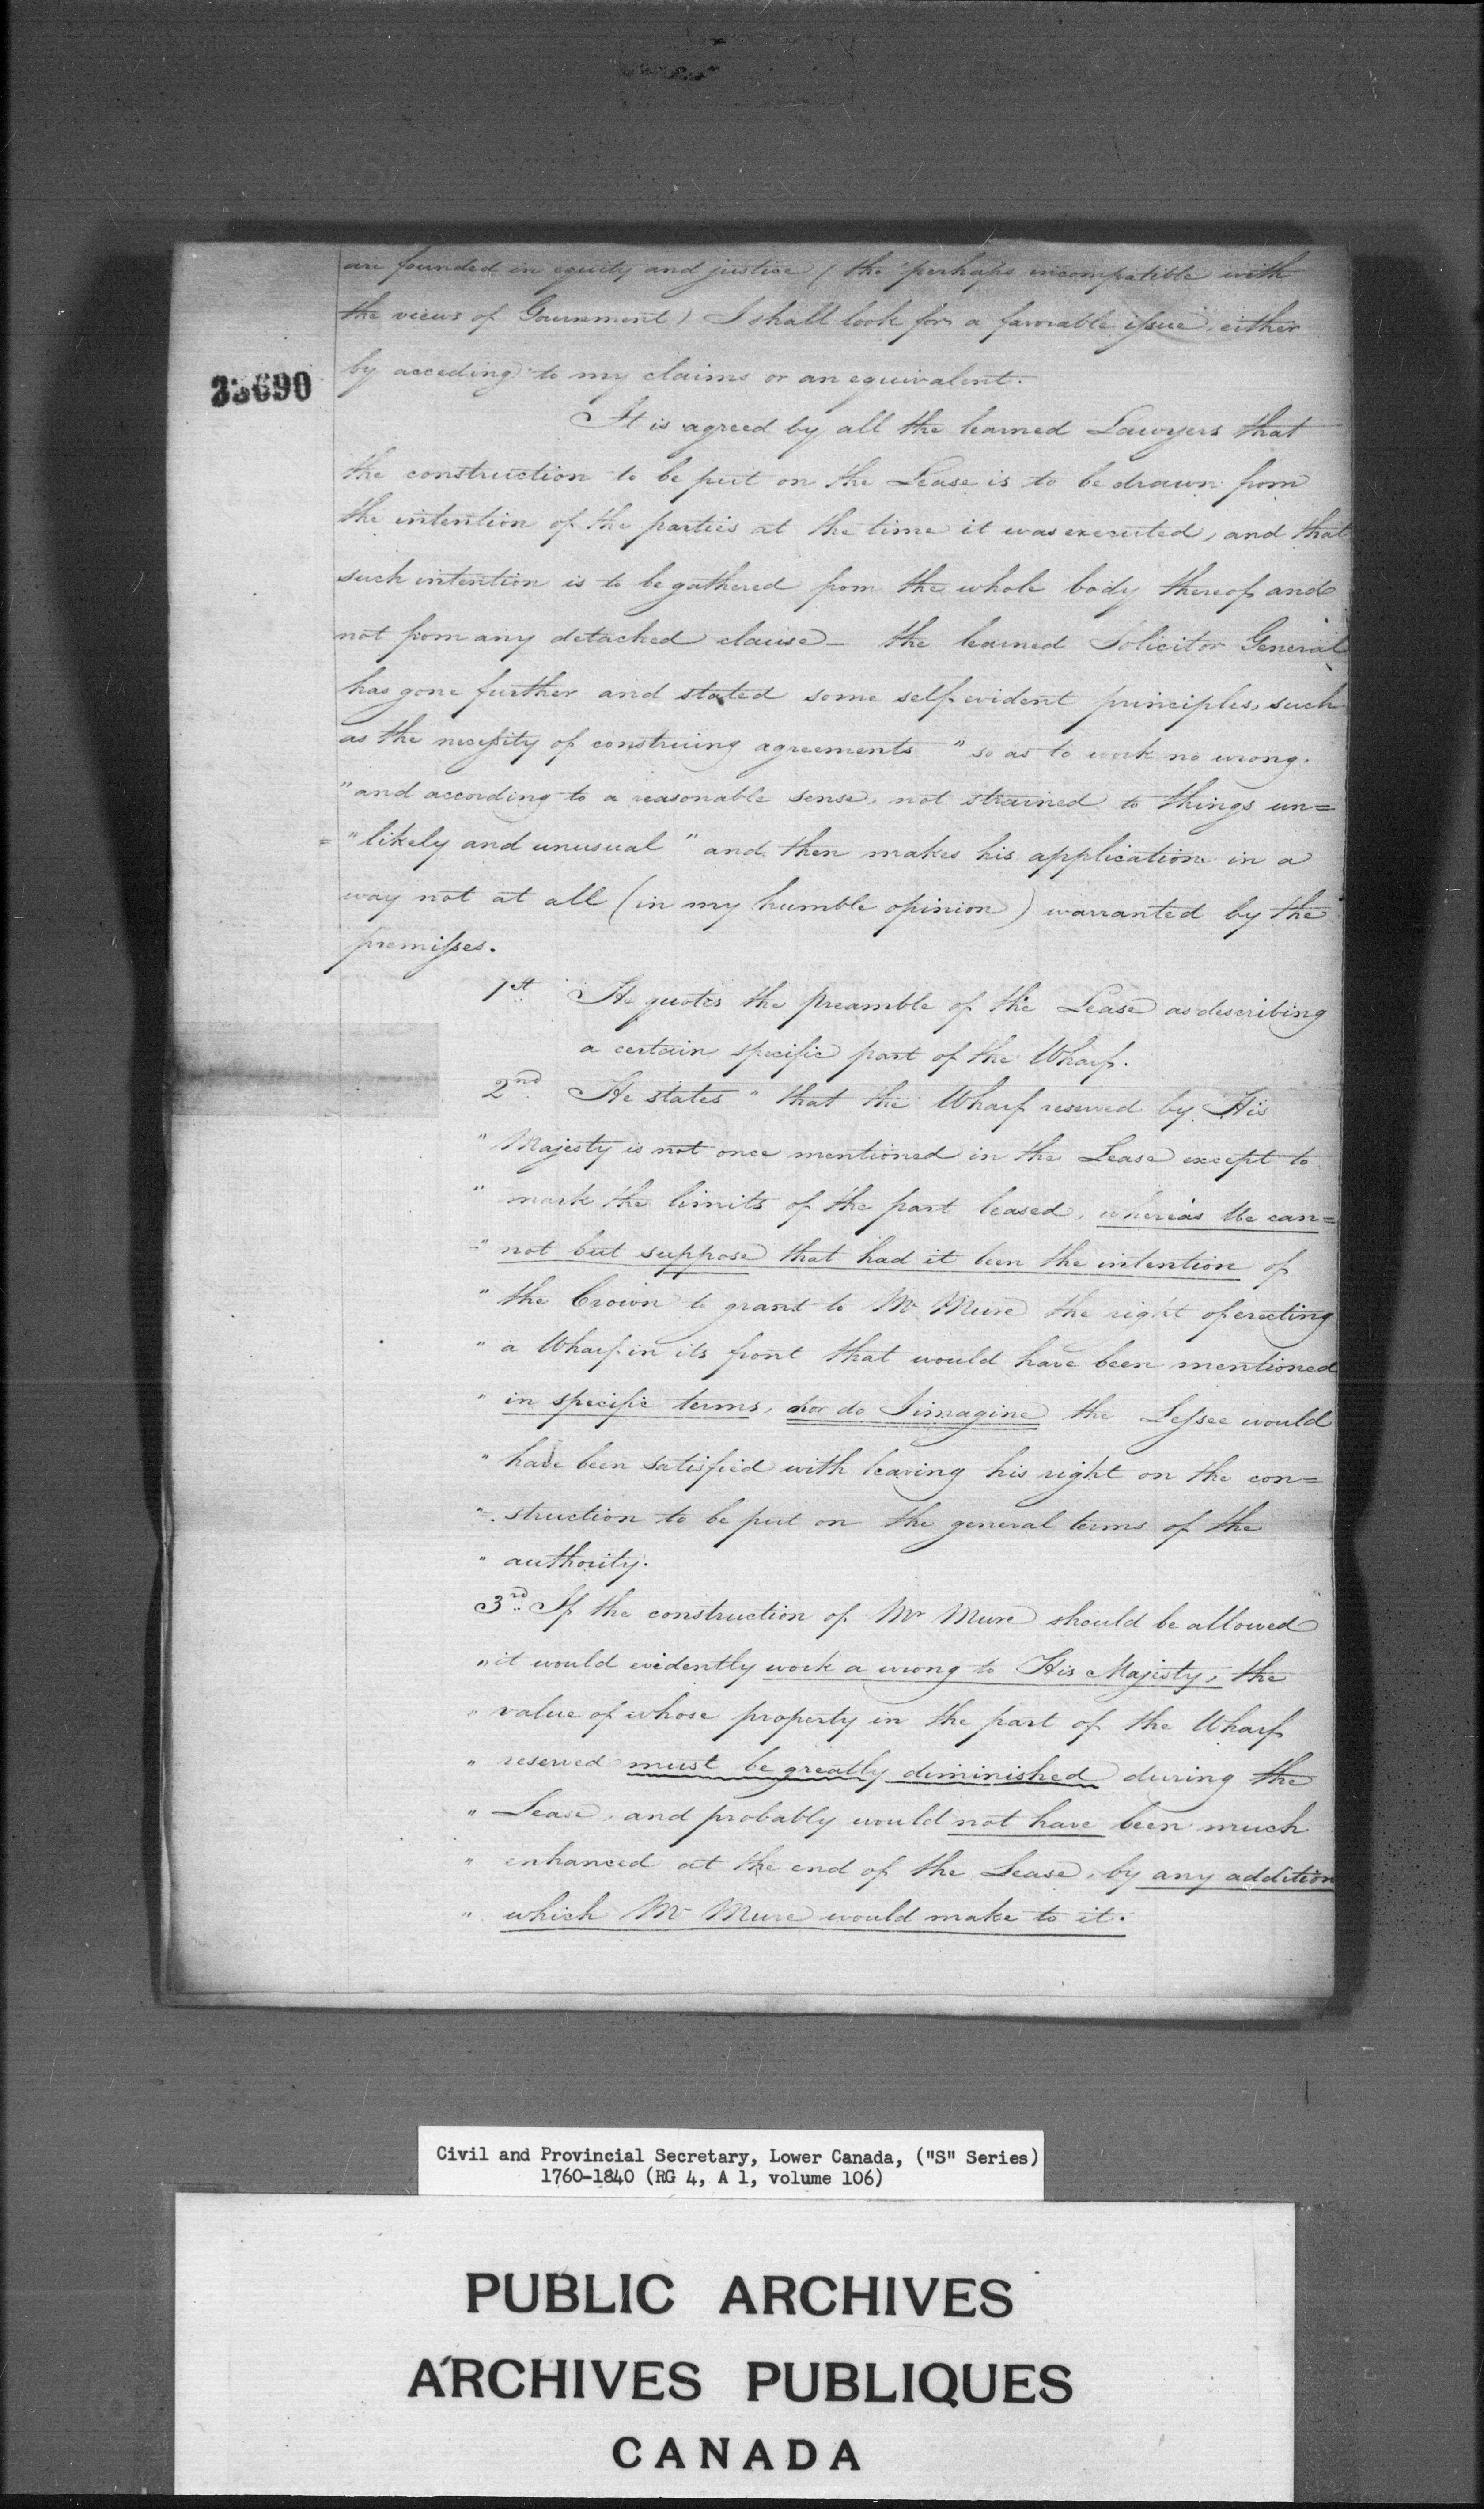 are founded in equity and justice (tho' perhaps incompatible with
the views of Government) I shall look for a favorable issue, either
by acceding to my claims or an equivalent.
33690
It is agreed by all the learned Lawyers that
the construction to be put on the Lease is to be drawn from
the intention of the parties at the time it was executed, and that
such intention is to be gathered from the whole body thereof and
not from any detached clause — the learned Solicitor General
has gone further and stated some self evident principles, such
as the necessity of construing agreements " so as to work no wrong.
" and according to a reasonable sense, not strained to things un=
= " likely and unusual " and then makes his application in a
way not at all (in my humble opinion) warranted by the
premisses.
1st He quotes the preamble of the Lease as describing
a certain specific part of the Wharf.
2nd He states " that the Wharf reserved by His
" Majesty is not once mentioned in the Lease except to
" mark the limits of the part leased, whereas We can=
=" not but suppose that had it been the intention of
" the Crown to grant to Mr Mure the right of erecting
" a Wharf in its front that would have been mentioned
" in specific terms, nor do I imagine the Lessee would
" have been satisfied with leaving his right on the con=
"=. struction to be put on the general terms of the
" authority.
3rd If the construction of Mr Mure should be allowed
" it would evidently work a wrong to His Majesty, the
" value of whose property in the part of the Wharf
" reserved must be greatly diminished during the
" Lease, and probably would not have been much
" enhanced at the end of the Lease, by any addition
" which Mr Mure would make to it.
Civil and Provincial Secretary, Lower Canada, ("S" Series)
1760-1840 (RG 4, A 1, volume 106)
PUBLIC ARCHIVES
ARCHIVES PUBLIQUES
CANADA